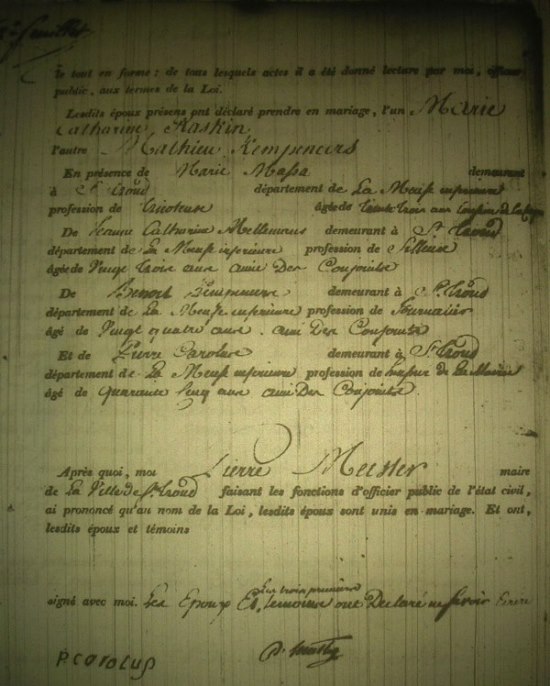 feuillet
le tout en forme : de tous lesquels actes il a été donné lecture par moi, officier
public, aux termes de la Loi.
Lesdits époux présens ont déclaré prendre en mariage, l'un Marie
Catharine Raskin
l'autre Mathieu Kempeneers
En présence de Marie Massa demeurant
à St. Trond département de La Meuse inferieure
profession de tricoteuse âgée de trente trois ans
De Jeanne Catharine demeurant à St. Trond
département de La Meuse inferieure profession de fileuse
âgée de Vingt trois ans amie Des Conjoints
De Benoit demeurant à St. Trond
département de La Meuse inferieure profession de Journalier
âgé de Vingt quatre ans ami Des Conjoints
Et de Pierre Carolus demeurant à St. Trond
département de La Meuse inferieure profession de de La Mairie
âgé de quarante cinq ans ami Des Conjoints
Après quoi, moi Pierre maire
de La Ville de St. Trond faisant les fonctions d'officier public de l'état civil,
ai prononcé qu'au nom de la Loi, lesdits époux sont unis en mariage. Et ont,
lesdits époux et témoins
Les trois premiers
signé avec moi. Les Epoux Et temoins ont Declaré ne savoir Ecrire
P. CAROLUS